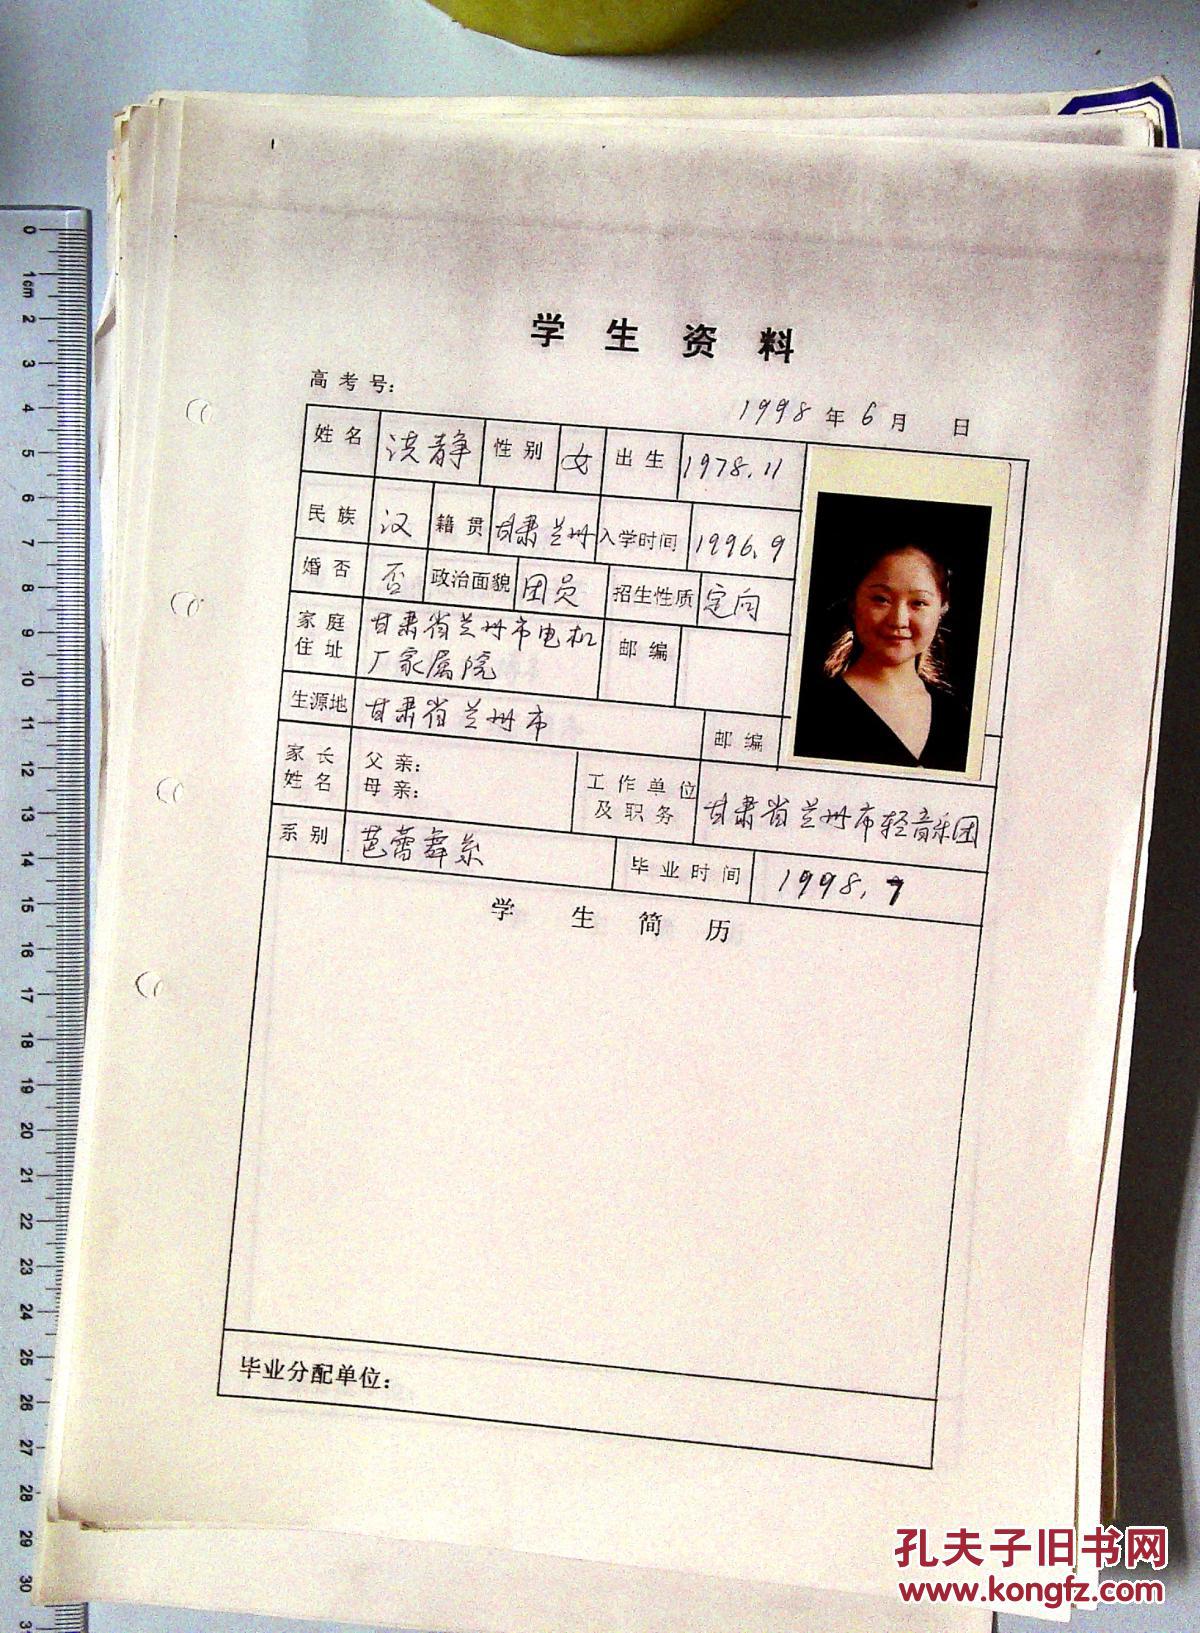 学生资料
高考号：
1998年6月 日
姓名 洪静 性别 女 出生 1978.11
民族 汉 籍贯 甘肃兰州 入学时间 1996.9
婚否 否 政治面貌 团员 招生性质 定向
家庭住址 甘肃省兰州市电机厂家属院 邮编
生源地 甘肃省兰州市 邮编
家长姓名 父亲： 母亲： 工作单位及职务 甘肃省兰州市轻音乐团
系别 芭蕾舞系 毕业时间 1998.7
学生简历
毕业分配单位：
0
1cm
2
3
4
5
6
7
8
9
10
11
12
13
14
15
16
17
18
19
20
21
22
23
24
25
26
27
28
29
30
孔夫子旧书网
www.kongfz.com